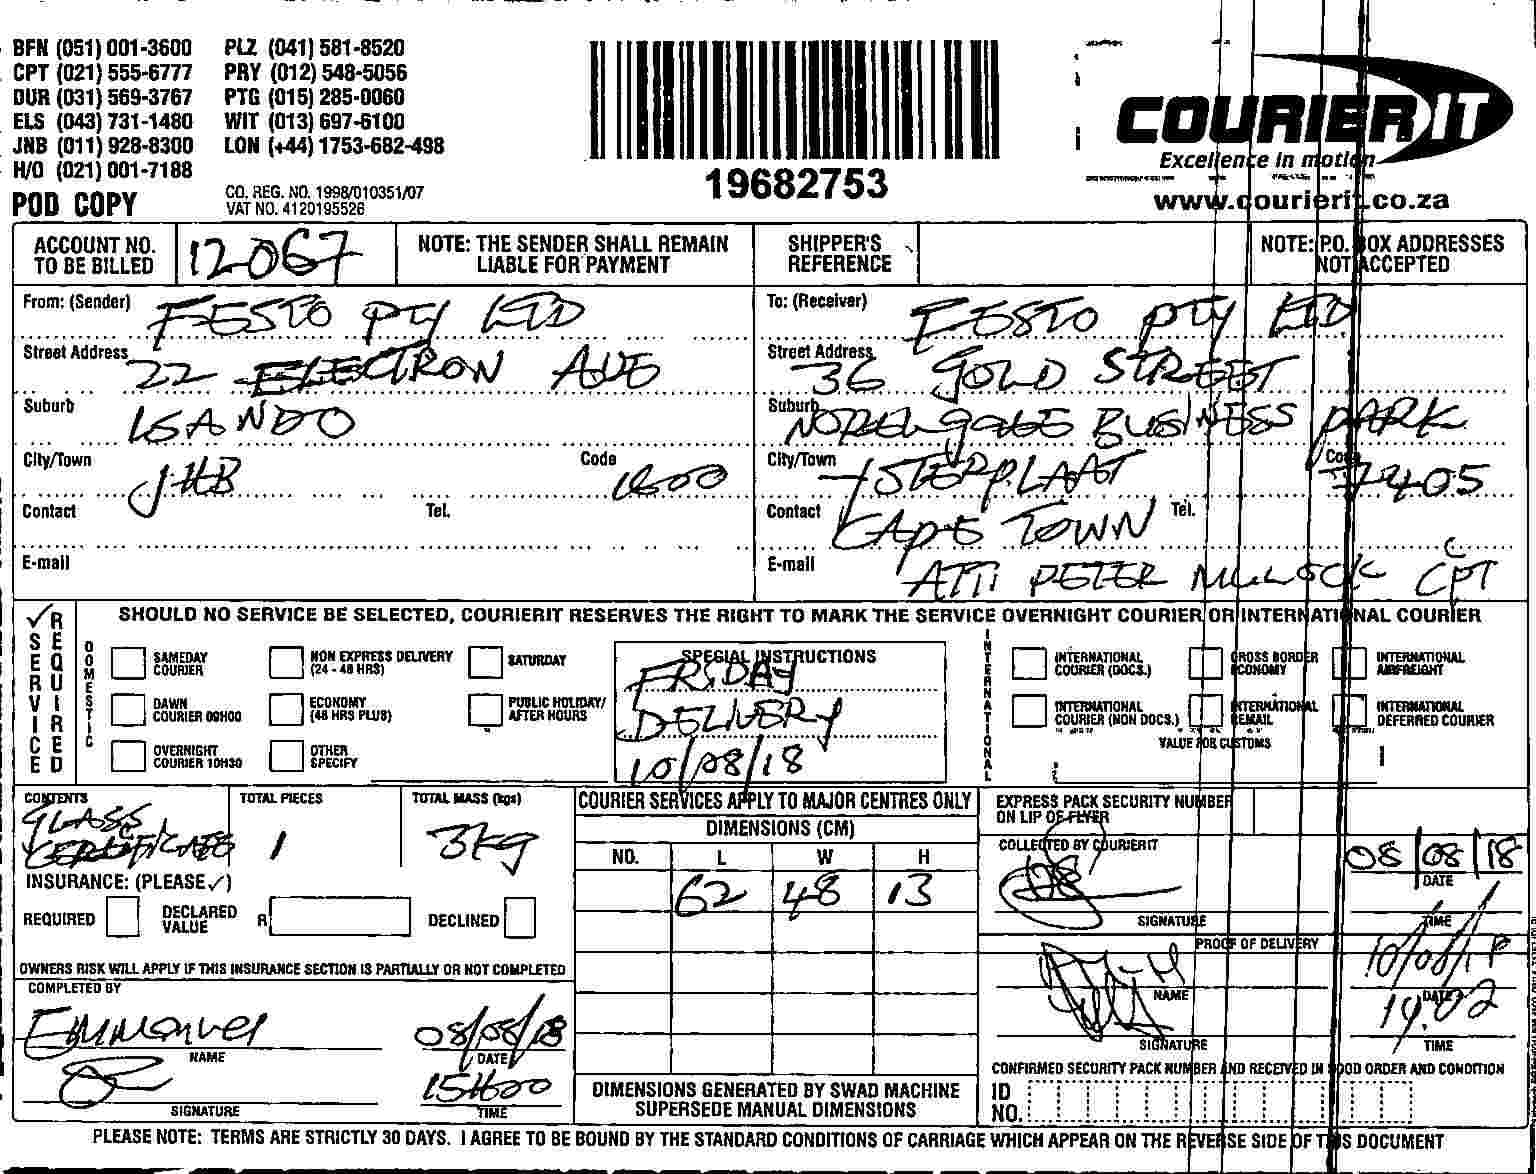 BFN (051) 001-3600 PLZ (041) 581-8520
CPT (021) 555-6777 PRY (012) 548-5056
DUR (031) 569-3767 PTG (015) 285-0060
ELS (043) 731-1480 WIT (013) 697-6100
JNB (011) 928-8300 LON (+44) 1753-682-498
H/O (021) 001-7188
POD COPY
CO. REG. NO. 1998/010351/07
VAT NO. 4120195526
19682753
COURIER IT
Excellence in motion
www.courierit.co.za
ACCOUNT NO. TO BE BILLED 12067
NOTE: THE SENDER SHALL REMAIN LIABLE FOR PAYMENT
SHIPPER'S REFERENCE
NOTE: P.O. BOX ADDRESSES NOT ACCEPTED
From: (Sender) FESTO PTY LTD
Street Address 22 ELECTRON AVE
Suburb ISANDO
City/Town JHB Code 1600
Contact Tel.
E-mail
To: (Receiver) FESTO PTY LTD
Street Address 36 GOLD STREET
Suburb BUSINESS PARK
City/Town YSTERPLAAT Code 7405
Contact CAPE TOWN Tel.
E-mail ATT: PETER CPT
✓ SERVICE REQUIRED
SHOULD NO SERVICE BE SELECTED, COURIERIT RESERVES THE RIGHT TO MARK THE SERVICE OVERNIGHT COURIER OR INTERNATIONAL COURIER
DOMESTIC
SAMEDAY COURIER
NON EXPRESS DELIVERY (24 - 48 HRS)
SATURDAY
DAWN COURIER 09H00
ECONOMY (48 HRS PLUS)
PUBLIC HOLIDAY/ AFTER HOURS
OVERNIGHT COURIER 10H30
OTHER SPECIFY
SPECIAL INSTRUCTIONS
FRIDAY
DELIVERY
10/08/18
INTERNATIONAL
INTERNATIONAL COURIER (DOCS.)
CROSS BORDER ECONOMY
INTERNATIONAL AIRFREIGHT
INTERNATIONAL COURIER (NON DOCS.)
INTERNATIONAL REMAIL
INTERNATIONAL DEFERRED COURIER
VALUE FOR CUSTOMS
CONTENTS GLASS CERTIFICATE
TOTAL PIECES 1
TOTAL MASS (kgs) 3kg
INSURANCE: (PLEASE ✓)
REQUIRED DECLARED VALUE R DECLINED
OWNERS RISK WILL APPLY IF THIS INSURANCE SECTION IS PARTIALLY OR NOT COMPLETED
COMPLETED BY
Emmanuel 08/08/18
NAME DATE
15H00
SIGNATURE TIME
COURIER SERVICES APPLY TO MAJOR CENTRES ONLY
DIMENSIONS (CM)
NO. L W H
62 48 13
DIMENSIONS GENERATED BY SWAD MACHINE SUPERSEDE MANUAL DIMENSIONS
EXPRESS PACK SECURITY NUMBER ON LIP OF FLYER
COLLECTED BY COURIERIT
08/08/18
DATE
SIGNATURE TIME
PROOF OF DELIVERY
10/08/18
NAME DATE
14.02
SIGNATURE TIME
CONFIRMED SECURITY PACK NUMBER AND RECEIVED IN GOOD ORDER AND CONDITION
ID NO.
PLEASE NOTE: TERMS ARE STRICTLY 30 DAYS. I AGREE TO BE BOUND BY THE STANDARD CONDITIONS OF CARRIAGE WHICH APPEAR ON THE REVERSE SIDE OF THIS DOCUMENT